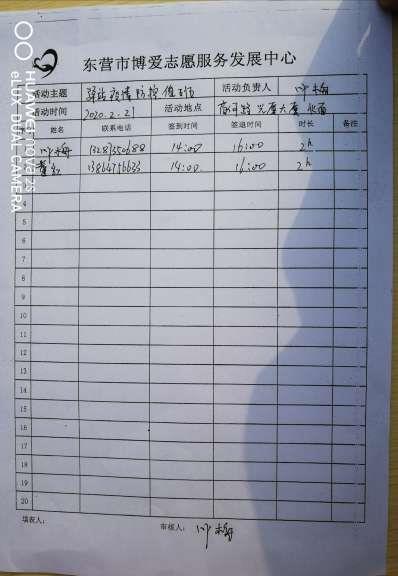 东营市博爱志愿服务发展中心
活动主题 疫情防控值班 活动负责人 叶梅
活动时间 2020.2.21 活动地点 大厦
姓名 联系电话 签到时间 签退时间 时长 备注
叶梅 13287350688 14:00 16:00 2h
13864756633 14:00 16:00 2h
5
6
7
8
9
10
11
12
13
14
15
16
17
18
19
20
填表人: 审核人: 叶梅
HUAWEI nova 2s
eLUX DUAL CAMERA